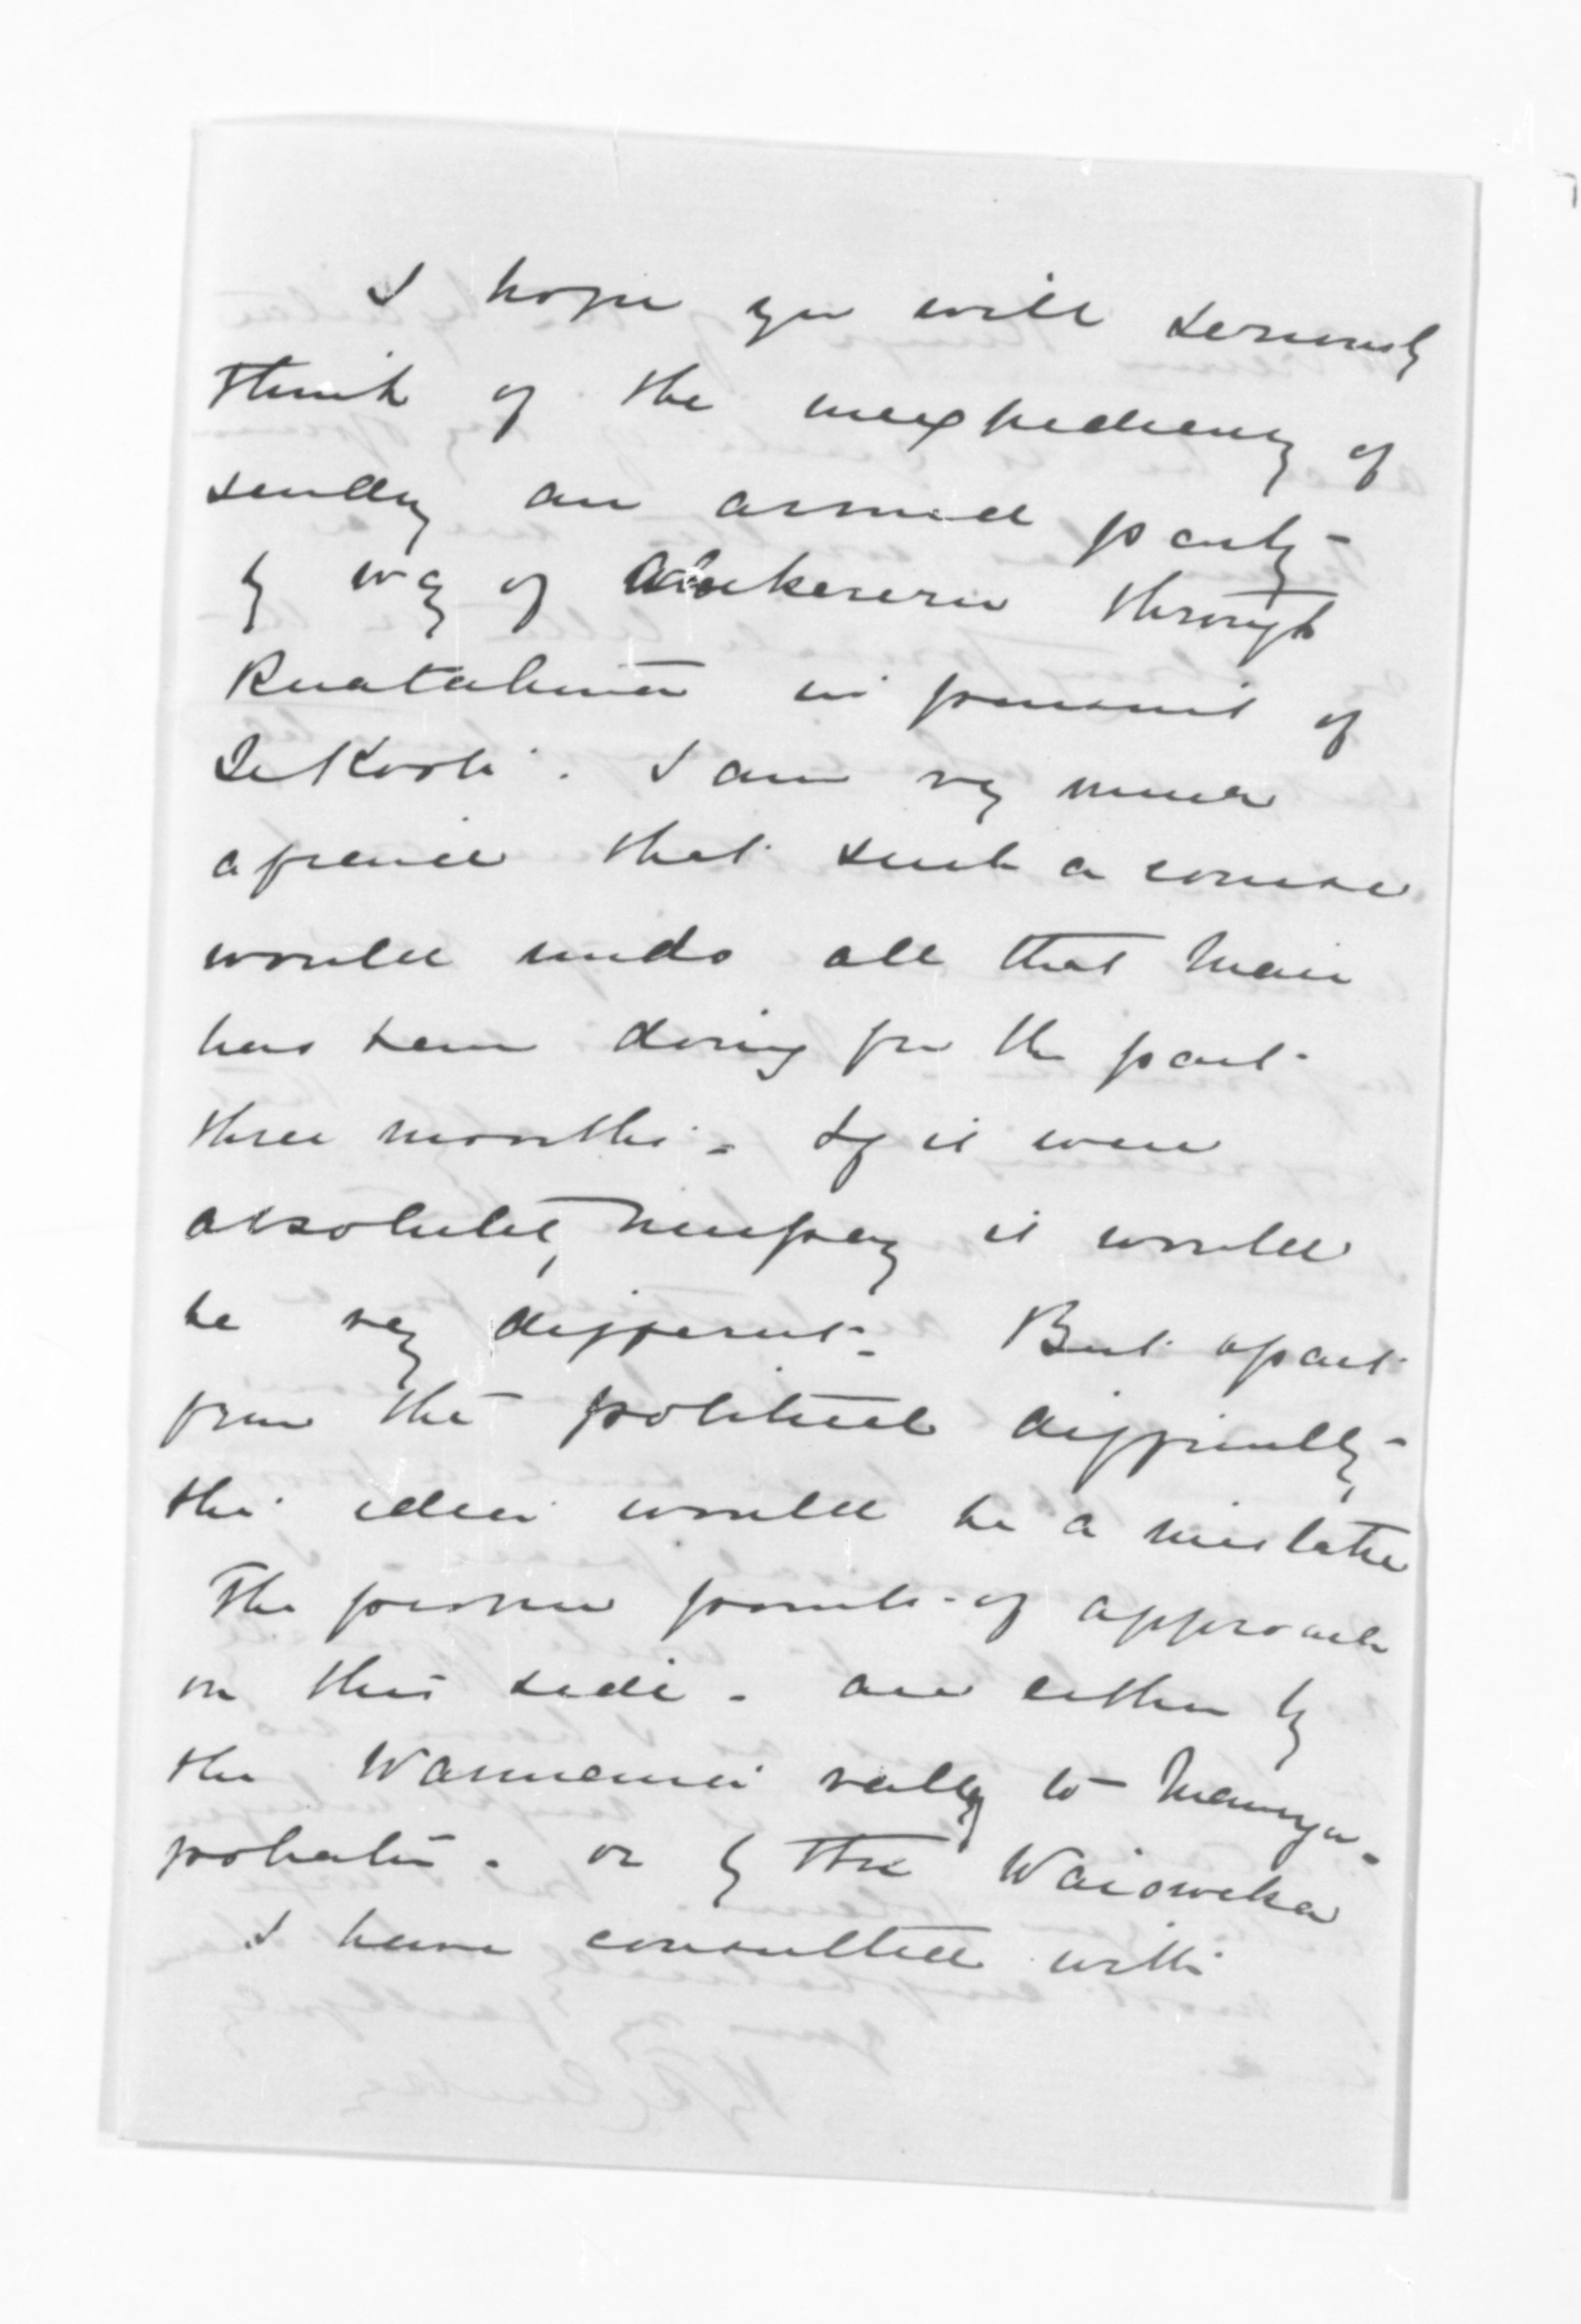 I hope you will seriously
think of the inexpediency of
sending an armed party
by way of through
Ruatahuna in pursuit of
Te Kooti. I am very much
afraid that such a course
would undo all that Mair
has been doing for the past
three months. If it were
absolutely necessary it would
be very different. But apart
from the political difficulty
the idea would be a mistake
The proper points of approach
on this side - are either by
the valley to Maunga-
pohatu - or by the Waioweka
I have consulted with